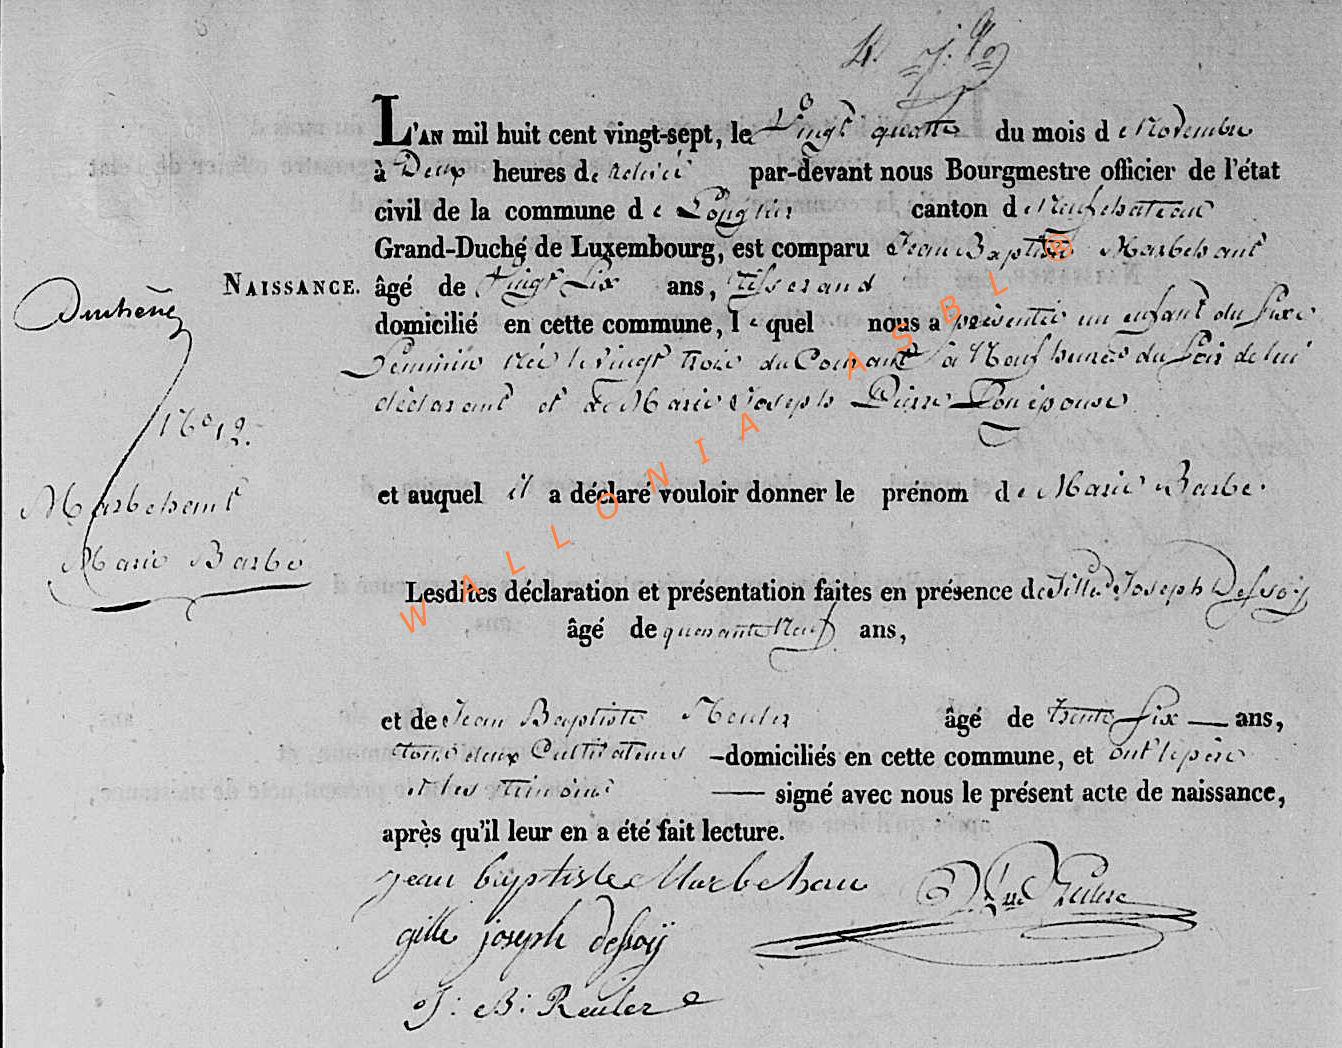 L'AN mil huit cent vingt-sept, le Vingt quatre du mois de Novembre
à Deux heures de relevée par-devant nous Bourgmestre officier de l'état
civil de la commune de Longlier canton de Neufchateau
Grand-Duché de Luxembourg, est comparu Jean Baptiste Marbehant
NAISSANCE. âgé de Vingt Six ans, tisserand
domicilié en cette commune, lequel nous a présenté un enfant du Sexe
Féminin née le vingt trois du Courant à Neuf heures du Soir de lui
déclarant et de Marie Joseph Pierre Son épouse
et auquel il a déclaré vouloir donner le prénom de Marie Barbe.
Lesdites déclaration et présentation faites en présence de Gille Joseph Dessoij
âgé de quarante Neuf ans,
et de Jean Baptiste Reuter âgé de trente Six — ans,
tous deux Cultivateurs – domiciliés en cette commune, et ont le père
et les témoins — signé avec nous le présent acte de naissance,
après qu'il leur en a été fait lecture.
jean baptiste Marbehan
gille joseph dessoij
J: B: Reuter
Duchêne
No 12.
Marbehant
Marie Barbe
WALLONIA ASBL